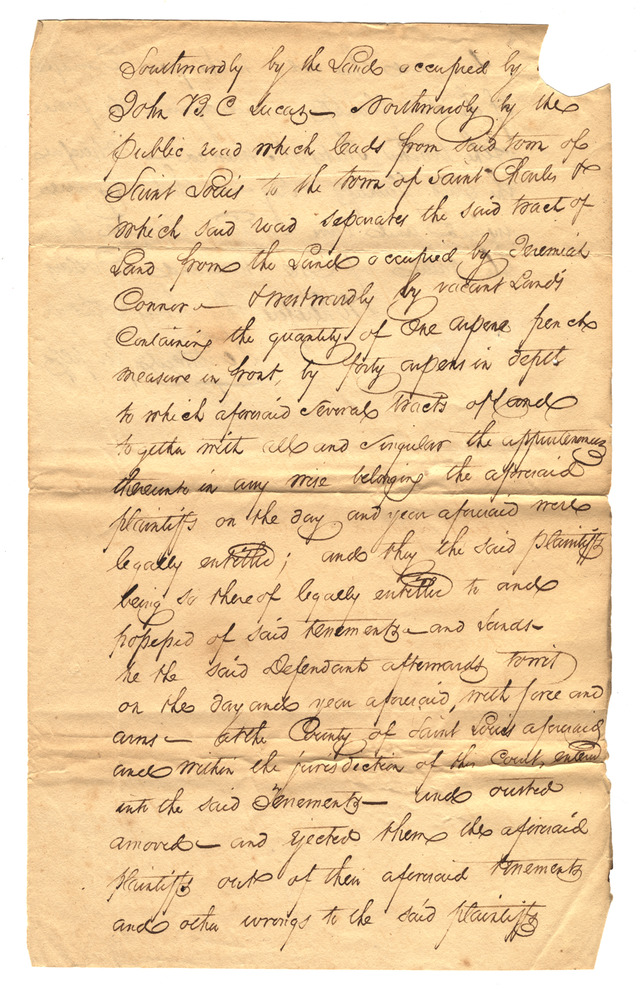 Southwardly by the Land occupied by
John B. C Lucas — Northwardly by the
public road which leads from said town of
Saint Louis to the town of Saint Charles &
which said road separates the said tract of
Land from the Land occupied by Jeremiah
Connor — & Westwardly by vacant Lands
Containing the quantity of One arpent french
measure in front, by forty arpens in depth
to which aforesaid several tracts of Land
together with all and singular the appurtenances
thereunto in any wise belonging the aforesaid
plaintiffs on the day and year aforesaid were
legally entitled; and they the said plaintiffs
being so thereof legally entitled to and
possessed of said tenements — and Lands —
he the said Defendant afterwards towit
on the day and year aforesaid, with force and
arms — at the County of Saint Louis aforesaid
and within the jurisdiction of this Court, entered
into the said Tenements — and ousted
amoved — and ejected them the aforesaid
plaintiffs out of their aforesaid tenements
and other wrongs to the said plaintiffs